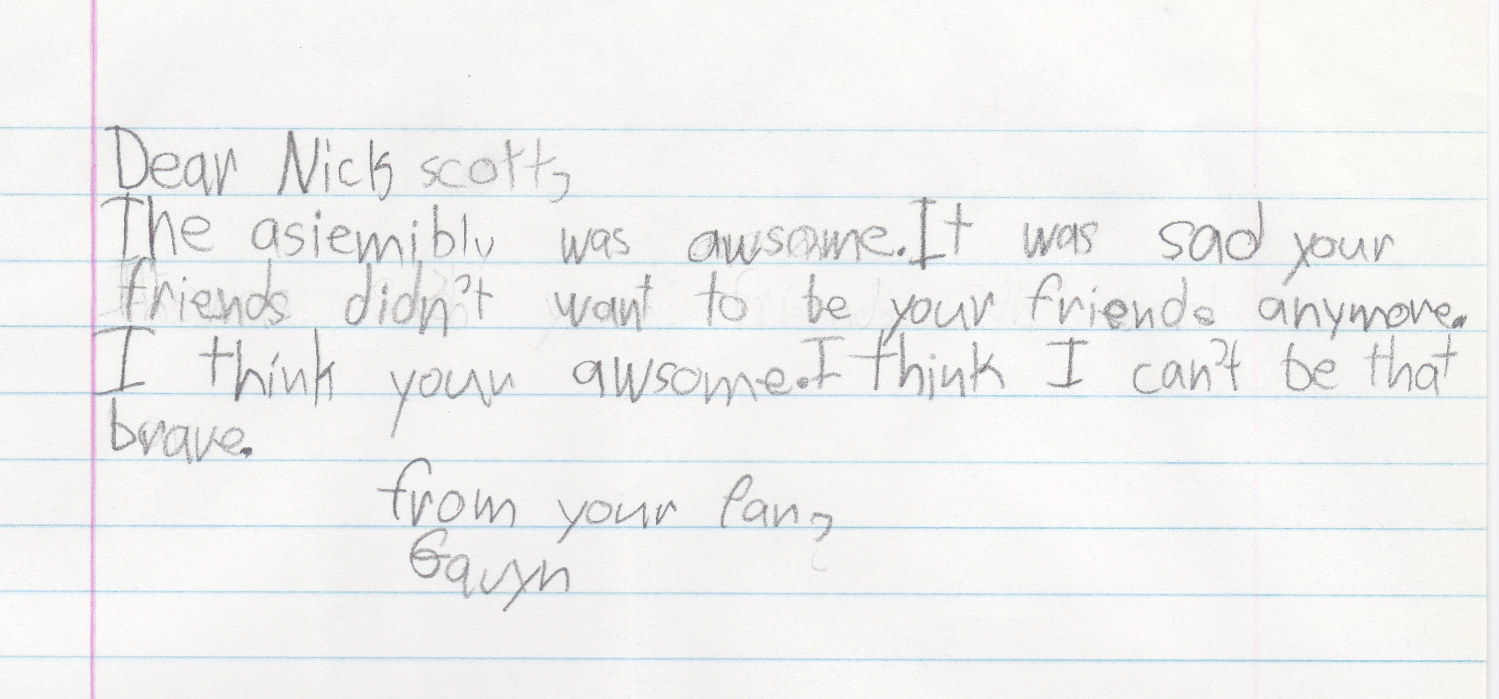 Dear Nick scott,
The asiemiblv was awsome.It was sad your
friends didn't want to be your friends anymore.
I think your awsome.I think I can't be that
brave.
from your fan,
Gavyn